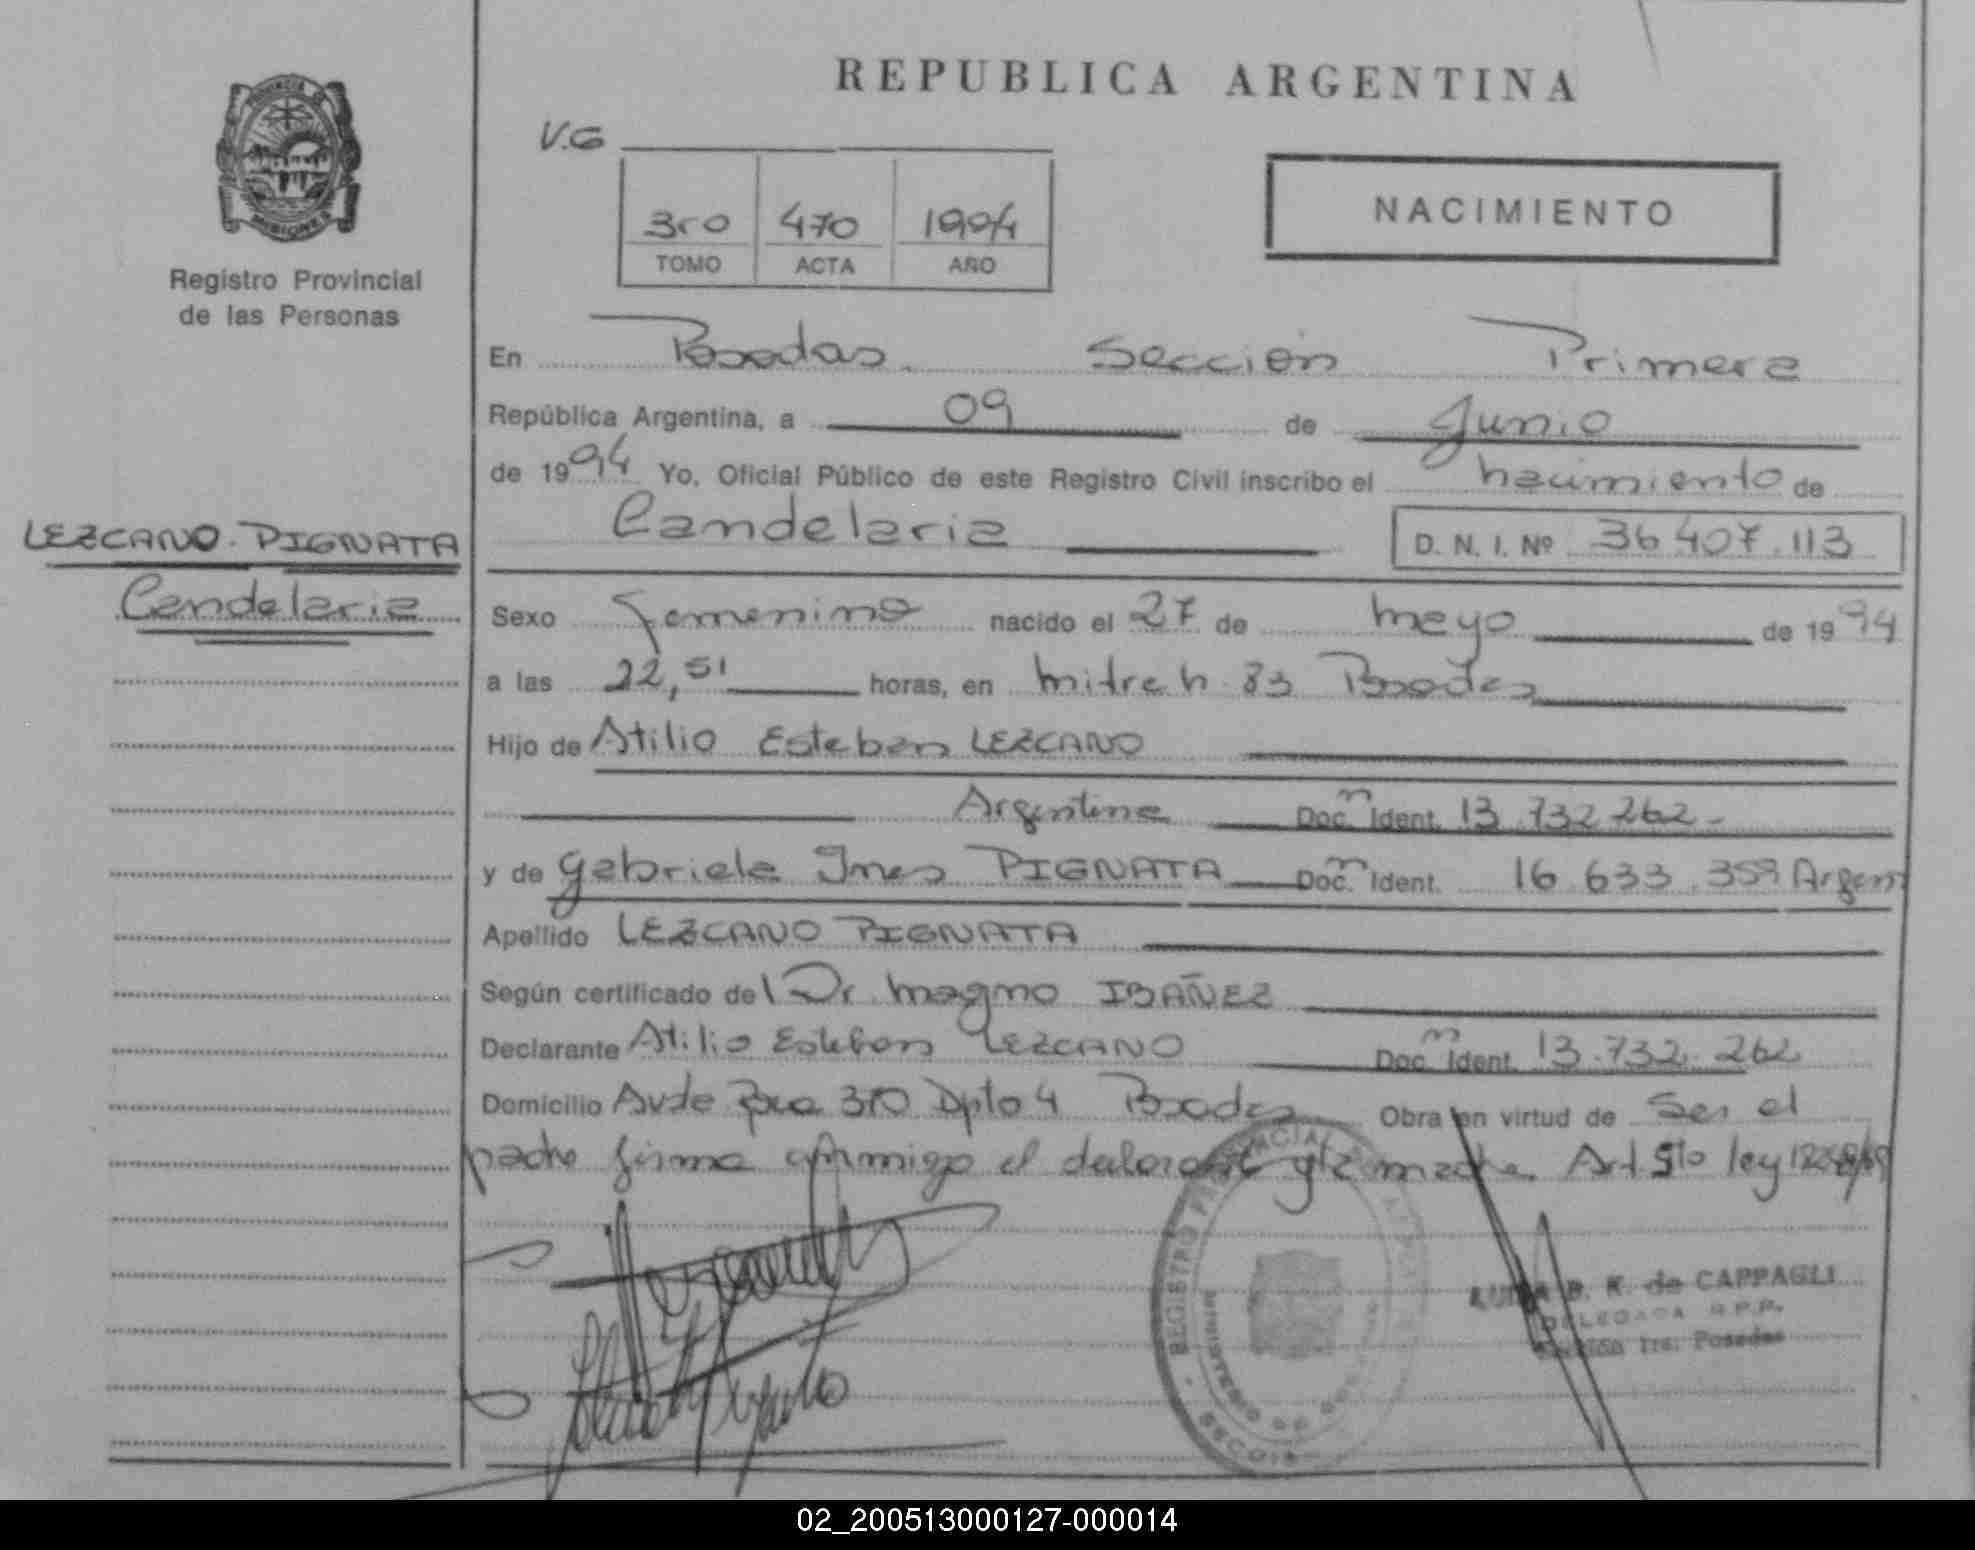 REPUBLICA ARGENTINA
V.G
3ro 470 1994
TOMO ACTA AÑO
NACIMIENTO
PROVINCIA DE
MISIONES
Registro Provincial
de las Personas
En Posadas. Sección Primera
República Argentina, a 09 de Junio
de 1994 Yo, Oficial Público de este Registro Civil inscribo el nacimiento de
LEZCANO. PIGNATA
Candelaria
Candelaria D. N. I. Nº 36 407.113
Sexo Femenino nacido el 27 de mayo de 1994
a las 22,51 horas, en mitre n 83 Posadas
Hijo de Atilio Esteban LEZCANO
Argentina Doc. Ident. 13.732 262-
y de Gabriela Ines PIGNATA Doc. Ident. 16 633.359 Argent
Apellido LEZCANO PIGNATA
Según certificado del Dr. Magno IBAÑEZ
Declarante Atilio Esteban LEZCANO Doc. Ident. 13.732.262
Domicilio Avda 310 Dpto 4 Posadas Obra en virtud de Ser el
padre firma conmigo el declarante y la madre. Art 5to ley
REGISTRO PROVINCIAL
MINISTERIO DE
LUISA B. K. de CAPPAGLI
DELEGADA R.P.P.
Sección 1ra. Posadas
02_200513000127-000014